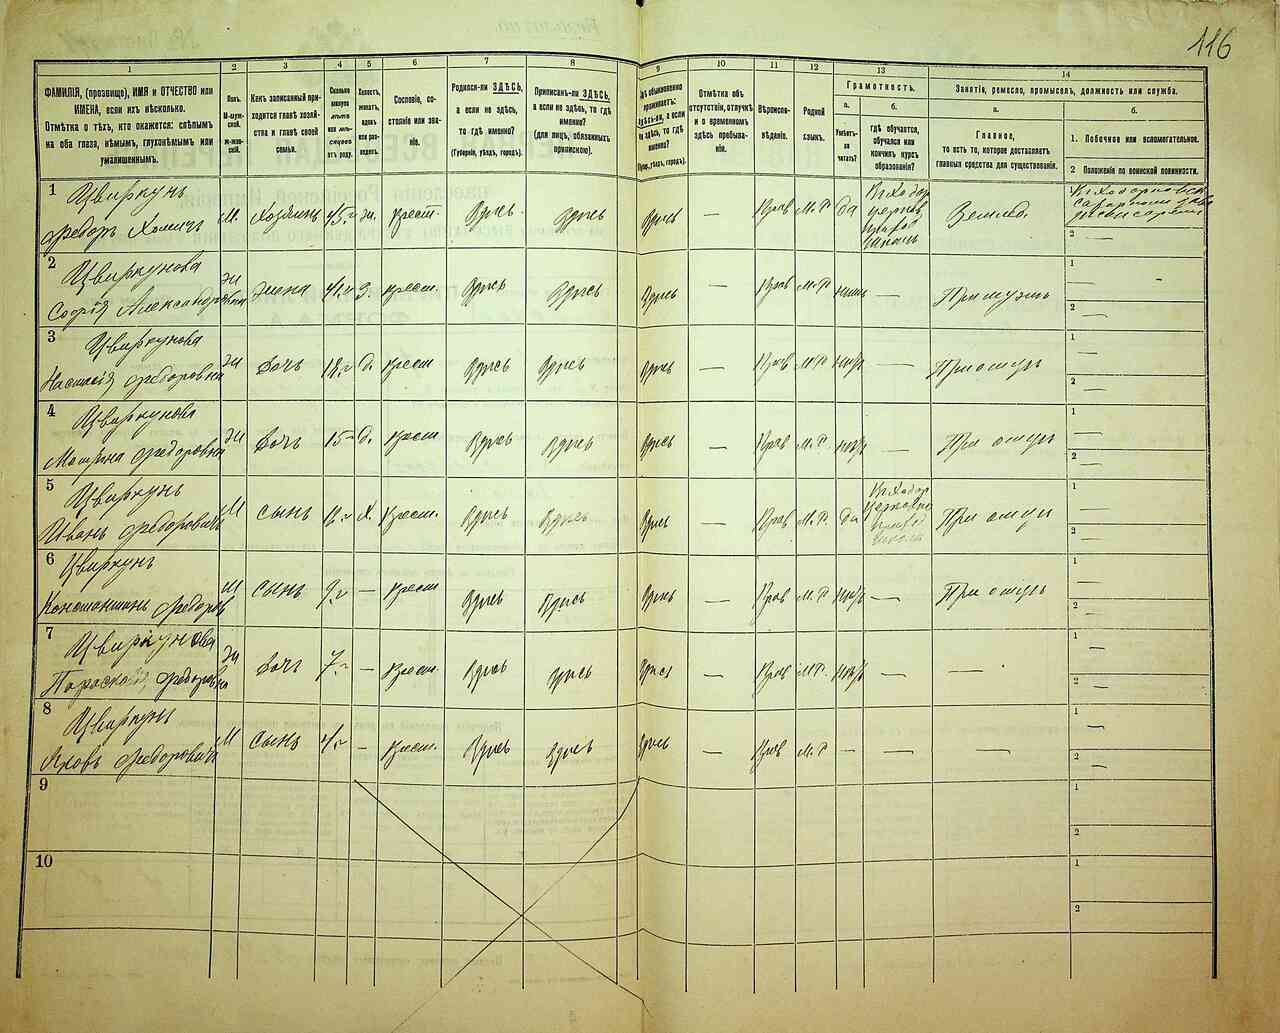 116
1 2 3 4 5 6 7 8 9 10 11 12 13 14
ФАМИЛІЯ, (прозвище), ИМЯ и ОТЧЕСТВО или
ИМЕНА, если ихъ нѣсколько.
Отмѣтка о тѣхъ, кто окажется: слѣпымъ
на оба глаза, нѣмымъ, глухонѣмымъ или
умалишеннымъ.
Полъ.
М-муж-
ской.
Ж-жен-
скій.
Какъ записанный при-
ходится главѣ хозяй-
ства и главѣ своей
семьи.
Сколько
минуло
лѣтъ
или мѣ-
сяцевъ
отъ роду.
Холостъ,
женатъ,
вдовъ
или раз-
веденъ.
Сословіе, со-
стояніе или зва-
ніе.
Родился-ли ЗДѢСЬ,
а если не здѣсь,
то гдѣ именно?
(Губернія, уѣздъ, городъ).
Приписанъ-ли ЗДѢСЬ,
а если не здѣсь, то гдѣ
именно?
(для лицъ, обязанныхъ
припискою).
Гдѣ обыкновенно
проживаетъ:
здѣсь-ли, а если
не здѣсь, то гдѣ
именно?
(Губер., уѣздъ, городъ).
Отмѣтка объ
отсутствіи, отлучкѣ
и о временномъ
здѣсь пребыва-
ніи.
Вѣроиспо-
вѣданіе.
Родной
языкъ.
Грамотность.
а.
Умѣетъ-
ли
читать?
б.
гдѣ обучается,
обучался или
кончилъ курсъ
образованія?
Занятіе, ремесло, промыселъ, должность или служба.
а.
Главное,
то есть то, которое доставляетъ
главныя средства для существованія.
б.
1. Побочное или вспомогательное.
2 Положеніе по воинской повинности.
1 Цвиркунъ
Федоръ Хомичъ М Хозяинъ 45 ж. Крест. Здѣсь Здѣсь Здѣсь — Прав М.Р Да Землед.
2 Цвиркунова
Софія Александровна Ж Жена 41 З. Крест. Здѣсь Здѣсь Здѣсь — Прав М.Р При мужѣ
3 Цвиркунова
Настасія Федоровна Ж Дочь 18 Д. Крест Здѣсь Здѣсь Здѣсь — Прав М.Р нѣтъ — При отцѣ
4 Цвиркунова
Мотрина Федоровна Ж Дочь 15 Д. Крест Здѣсь Здѣсь Здѣсь — Прав М.Р. нѣтъ — При отцѣ
5 Цвиркунъ
Иванъ Федоровичъ М Сынъ Х. Крест. Здѣсь Здѣсь Здѣсь — Прав М.Р. Да При отцѣ
6 Цвиркунъ
Константинъ Федоров М Сынъ 9 — Крест Здѣсь Здѣсь Здѣсь — Прав М.Р нѣтъ — При отцѣ
7 Цвиркунова
Федоровна Ж Дочь 7 — Крест. Здѣсь Здѣсь Здѣсь — Прав М.Р. нѣтъ — —
8 Цвиркунъ
Яковъ Федоровичъ М Сынъ 4 — Крест. Здѣсь Здѣсь Здѣсь — Прав М.Р — — —
9
10